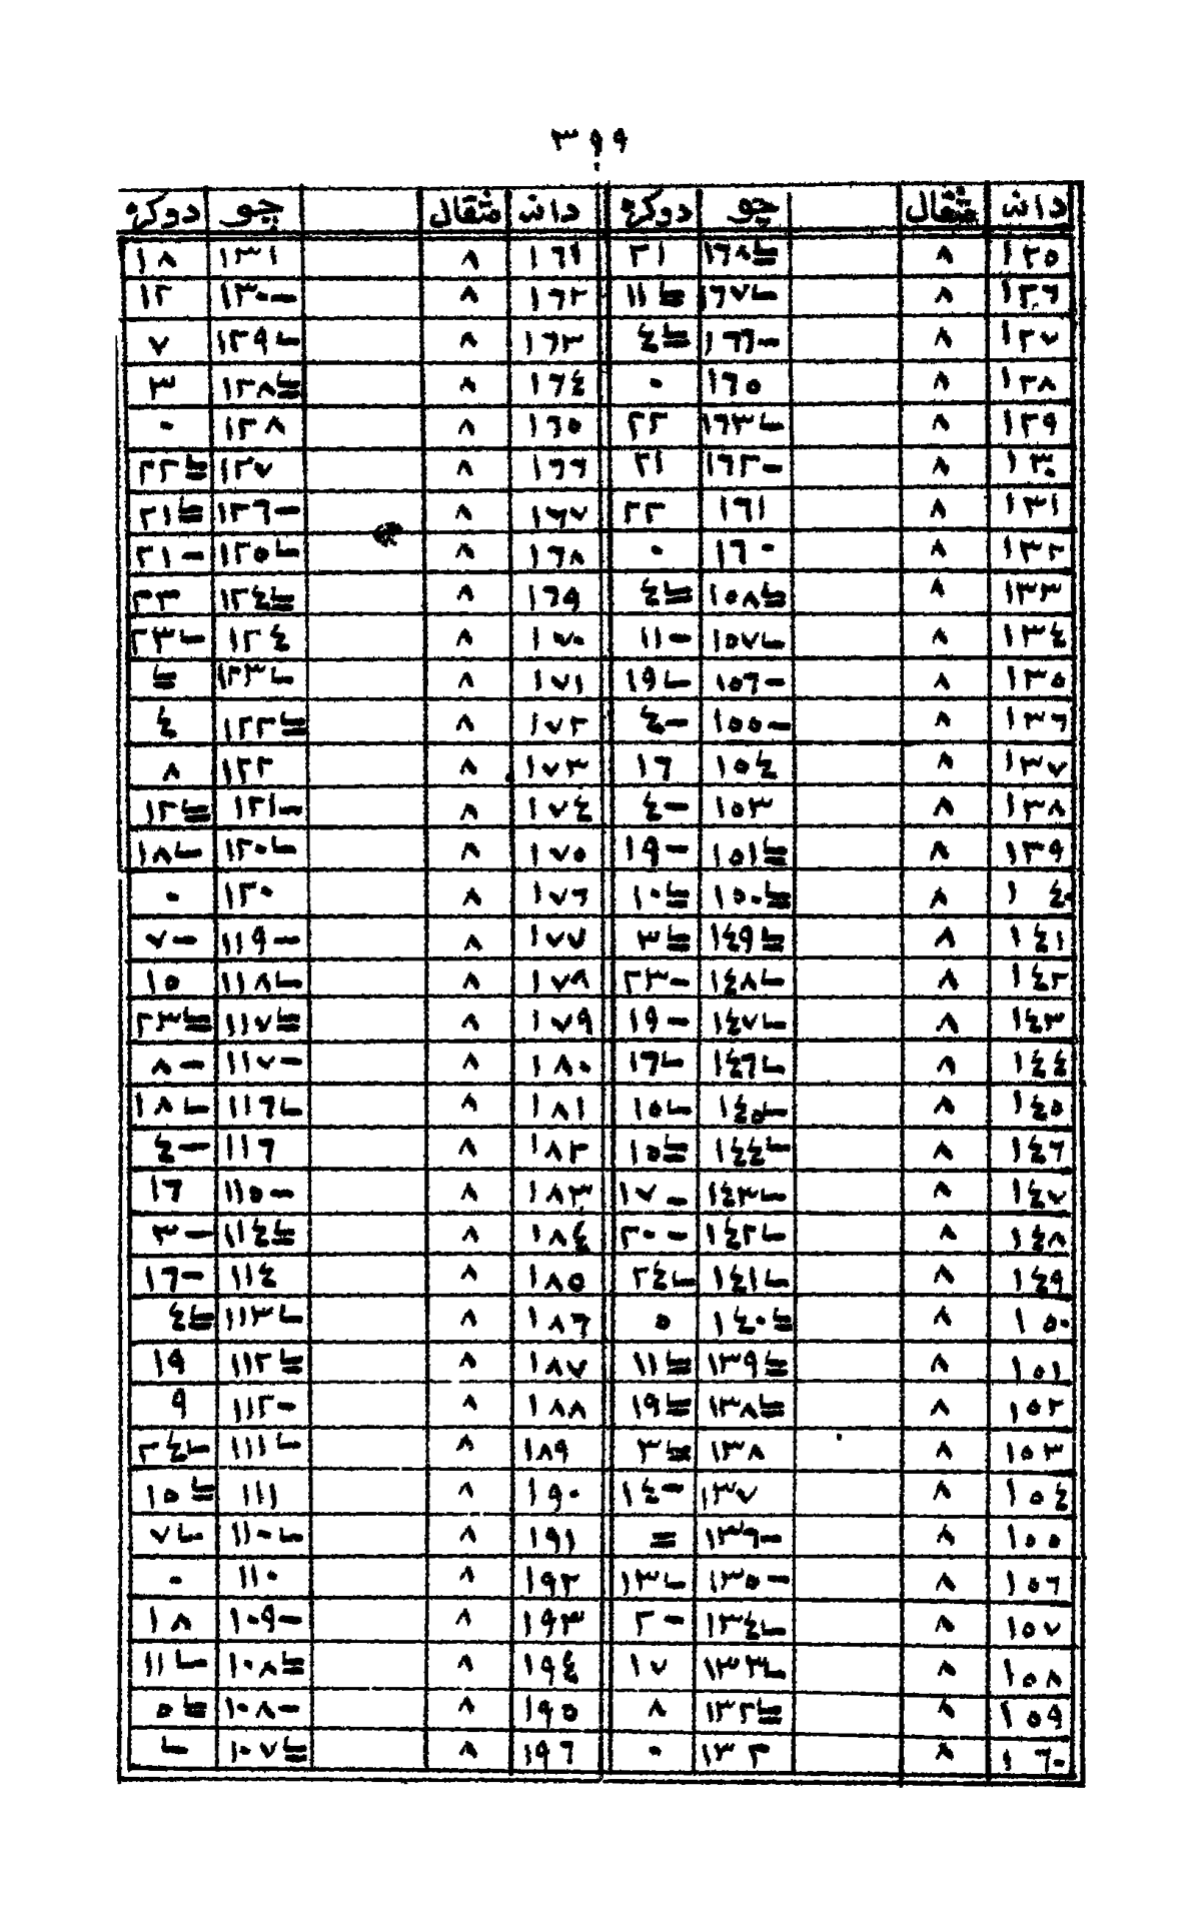 ٣٩٩
دانه مثقال جو دوكره دانه مثقال جو دوكره
١٢٥ ٨ ١٦٨ ٢١ ١٦١ ٨ ١٣١ ١٨
١٢٦ ٨ ١٦٧ ١١ ١٦٢ ٨ ١٣٠- ١٢
١٢٧ ٨ ١٦٦- ٤ ١٦٣ ٨ ١٢٩ ٧
١٢٨ ٨ ١٦٥ ٠ ١٦٤ ٨ ١٢٨ ٣
١٢٩ ٨ ١٦٣ ٢٢ ١٦٥ ٨ ١٢٨ ٠
١٣٠ ٨ ١٦٢- ٢١ ١٦٦ ٨ ١٢٧ ٢٢
١٣١ ٨ ١٦١ ٢٢ ١٦٧ ٨ ١٢٦- ٢١
١٣٢ ٨ ١٦٠ ٠ ١٦٨ ٨ ١٢٥ ٢١-
١٣٣ ٨ ١٥٨ ٤ ١٦٩ ٨ ١٢٤ ٢٣
١٣٤ ٨ ١٥٧ ١١- ١٧٠ ٨ ١٢٤ ٢٣
١٣٥ ٨ ١٥٦- ١٩ ١٧١ ٨ ١٢٣
١٣٦ ٨ ١٥٥- ٤- ١٧٢ ٨ ١٢٢ ٤
١٣٧ ٨ ١٥٤ ١٦ ١٧٣ ٨ ١٢٢ ٨
١٣٨ ٨ ١٥٣ ٤- ١٧٤ ٨ ١٢١ ١٢
١٣٩ ٨ ١٥١ ١٩- ١٧٥ ٨ ١٢٠ ١٨
١٤٠ ٨ ١٥٠ ١٠ ١٧٦ ٨ ١٢٠ ٠
١٤١ ٨ ١٤٩ ٣ ١٧٧ ٨ ١١٩- ٧-
١٤٢ ٨ ١٤٨ ٢٣- ١٧٨ ٨ ١١٨ ١٥
١٤٣ ٨ ١٤٧ ١٩- ١٧٩ ٨ ١١٧ ٢٣
١٤٤ ٨ ١٤٦ ١٦ ١٨٠ ٨ ١١٧- ٨-
١٤٥ ٨ ١٤٥ ١٥ ١٨١ ٨ ١١٦ ١٨
١٤٦ ٨ ١٤٤ ١٥ ١٨٢ ٨ ١١٦ ٤-
١٤٧ ٨ ١٤٣ ١٧- ١٨٣ ٨ ١١٥- ١٦
١٤٨ ٨ ١٤٢ ٢٠- ١٨٤ ٨ ١١٤ ٣-
١٤٩ ٨ ١٤١ ٢٤ ١٨٥ ٨ ١١٤ ١٦-
١٥٠ ٨ ١٤٠ ٥ ١٨٦ ٨ ١١٣ ٤
١٥١ ٨ ١٣٩ ١١ ١٨٧ ٨ ١١٢ ١٩
١٥٢ ٨ ١٣٨ ١٩ ١٨٨ ٨ ١١٢- ٩
١٥٣ ٨ ١٣٨ ٣ ١٨٩ ٨ ١١١ ٢٤
١٥٤ ٨ ١٣٧ ١٤- ١٩٠ ٨ ١١١ ١٥
١٥٥ ٨ ١٣٦- = ١٩١ ٨ ١١٠ ٧
١٥٦ ٨ ١٣٥- ١٣ ١٩٢ ٨ ١١٠ ٠
١٥٧ ٨ ١٣٤ ٢- ١٩٣ ٨ ١٠٩- ١٨
١٥٨ ٨ ١٣٣ ١٧ ١٩٤ ٨ ١٠٨ ١١
١٥٩ ٨ ١٣٢ ٨ ١٩٥ ٨ ١٠٨- ٥
١٦٠ ٨ ١٣٢ ٠ ١٩٦ ٨ ١٠٧